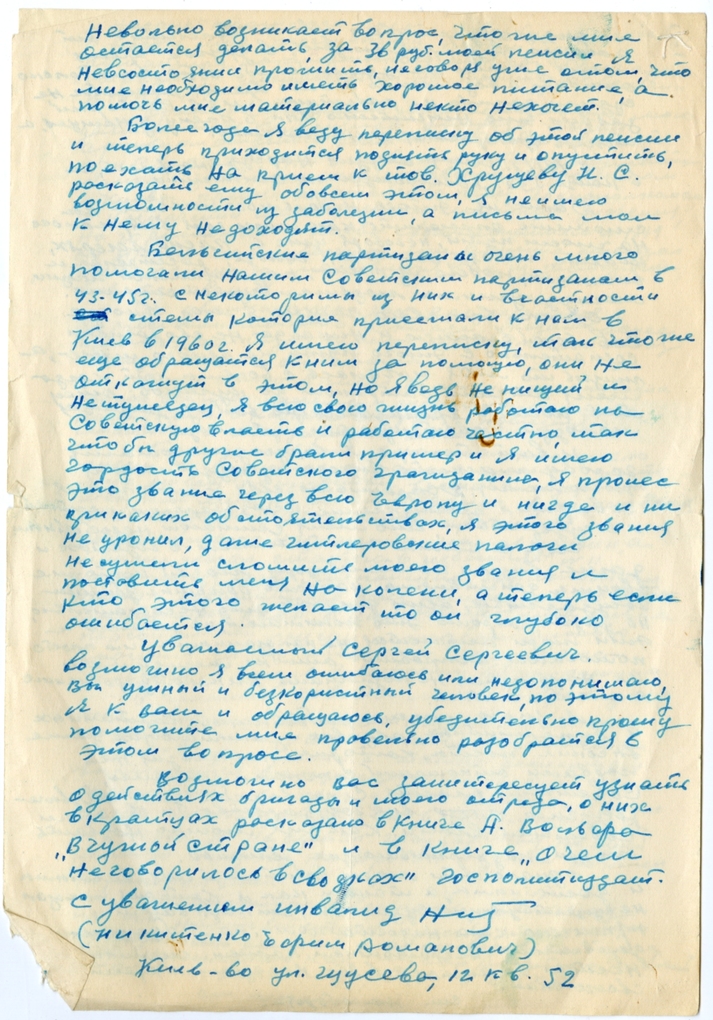 Невольно возникает вопрос, что же мне
остается делать, за 36 руб. моей пенсии я
невсостоянии прожить, неговоря уже отом, что
мне необходимо иметь хорошое питание, а
помочь мне материально некто нехочет.
Болеегода я веду переписку об этой пенсии
и теперь приходится поднять руку и опустить,
поехать на прием к тов. Хрущеву Н. С.
рассказать ему обовсем этом, я неимею
возможности из заболедни, а письма мои
к нему недоходят.
Бельгийские партизаны очень много
помогали нашим Советским партизанам в
43-45г. с некоторимы из них и вчастности
стемы которие приезжали к нам в
Киев в 1960г. я имею переписку, так чтоже
еще обращатся кним за помощю, они не
откажут в этом, но я ведь не нищий и
нетунеядец, я всю свою жизнь работаю на
Советскую власть и работаю честно, так
чтобы другие брали пример и я имею
гордость Советского гражданина, я пронес
это звание через всю Европу и нигде и ни
приканих обстоятельствах, я этого звания
не уронил, даже гитлеровские палачи
несумели сломить моего звания и
поставить меня на колени, а теперь если
кто этого желает то он глубоко
ошибается.
Уважаемый Сергей Сергеевич.
возможно я всем ошибаюсь или недопонимаю,
Вы умный и безкористный человек, по этому
я к вам и обращаюсь, убедительно прошу
помогите мне правельно разобратся в
этом вопросе.
Возможно вас заинтересует узнать
о действиях бригады и моего отряда, о них
вкратцах рассказано вкниге А. Вольфа
„Вчужой стране" и в книге „О чем
неговорилось в сводках" Госполитиздат.
с уважением инвалид
(Никитенко Ефрим Романович)
Киев-во ул. Щусева, 12 кв. 52